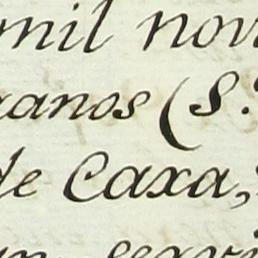 mil nov
anos (S.
de Caxa,